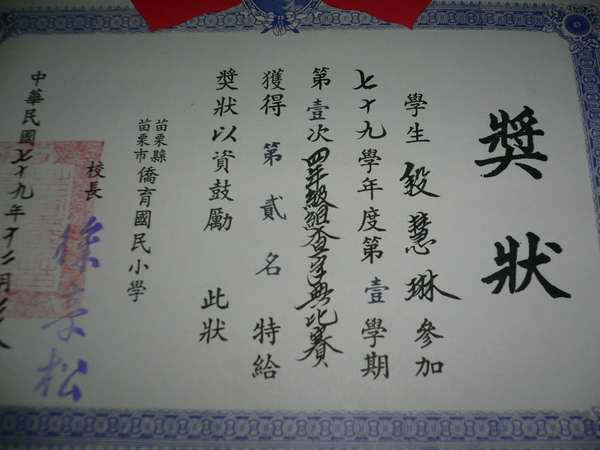 獎狀
學生 慧琳參加
七十九學年度第壹學期
第壹次四年級組查字典比賽
獲得第貳名特給
獎狀以資鼓勵 此狀
苗栗縣
苗栗市
僑育國民小學
校長 徐 松
中華民國七十九年十二月